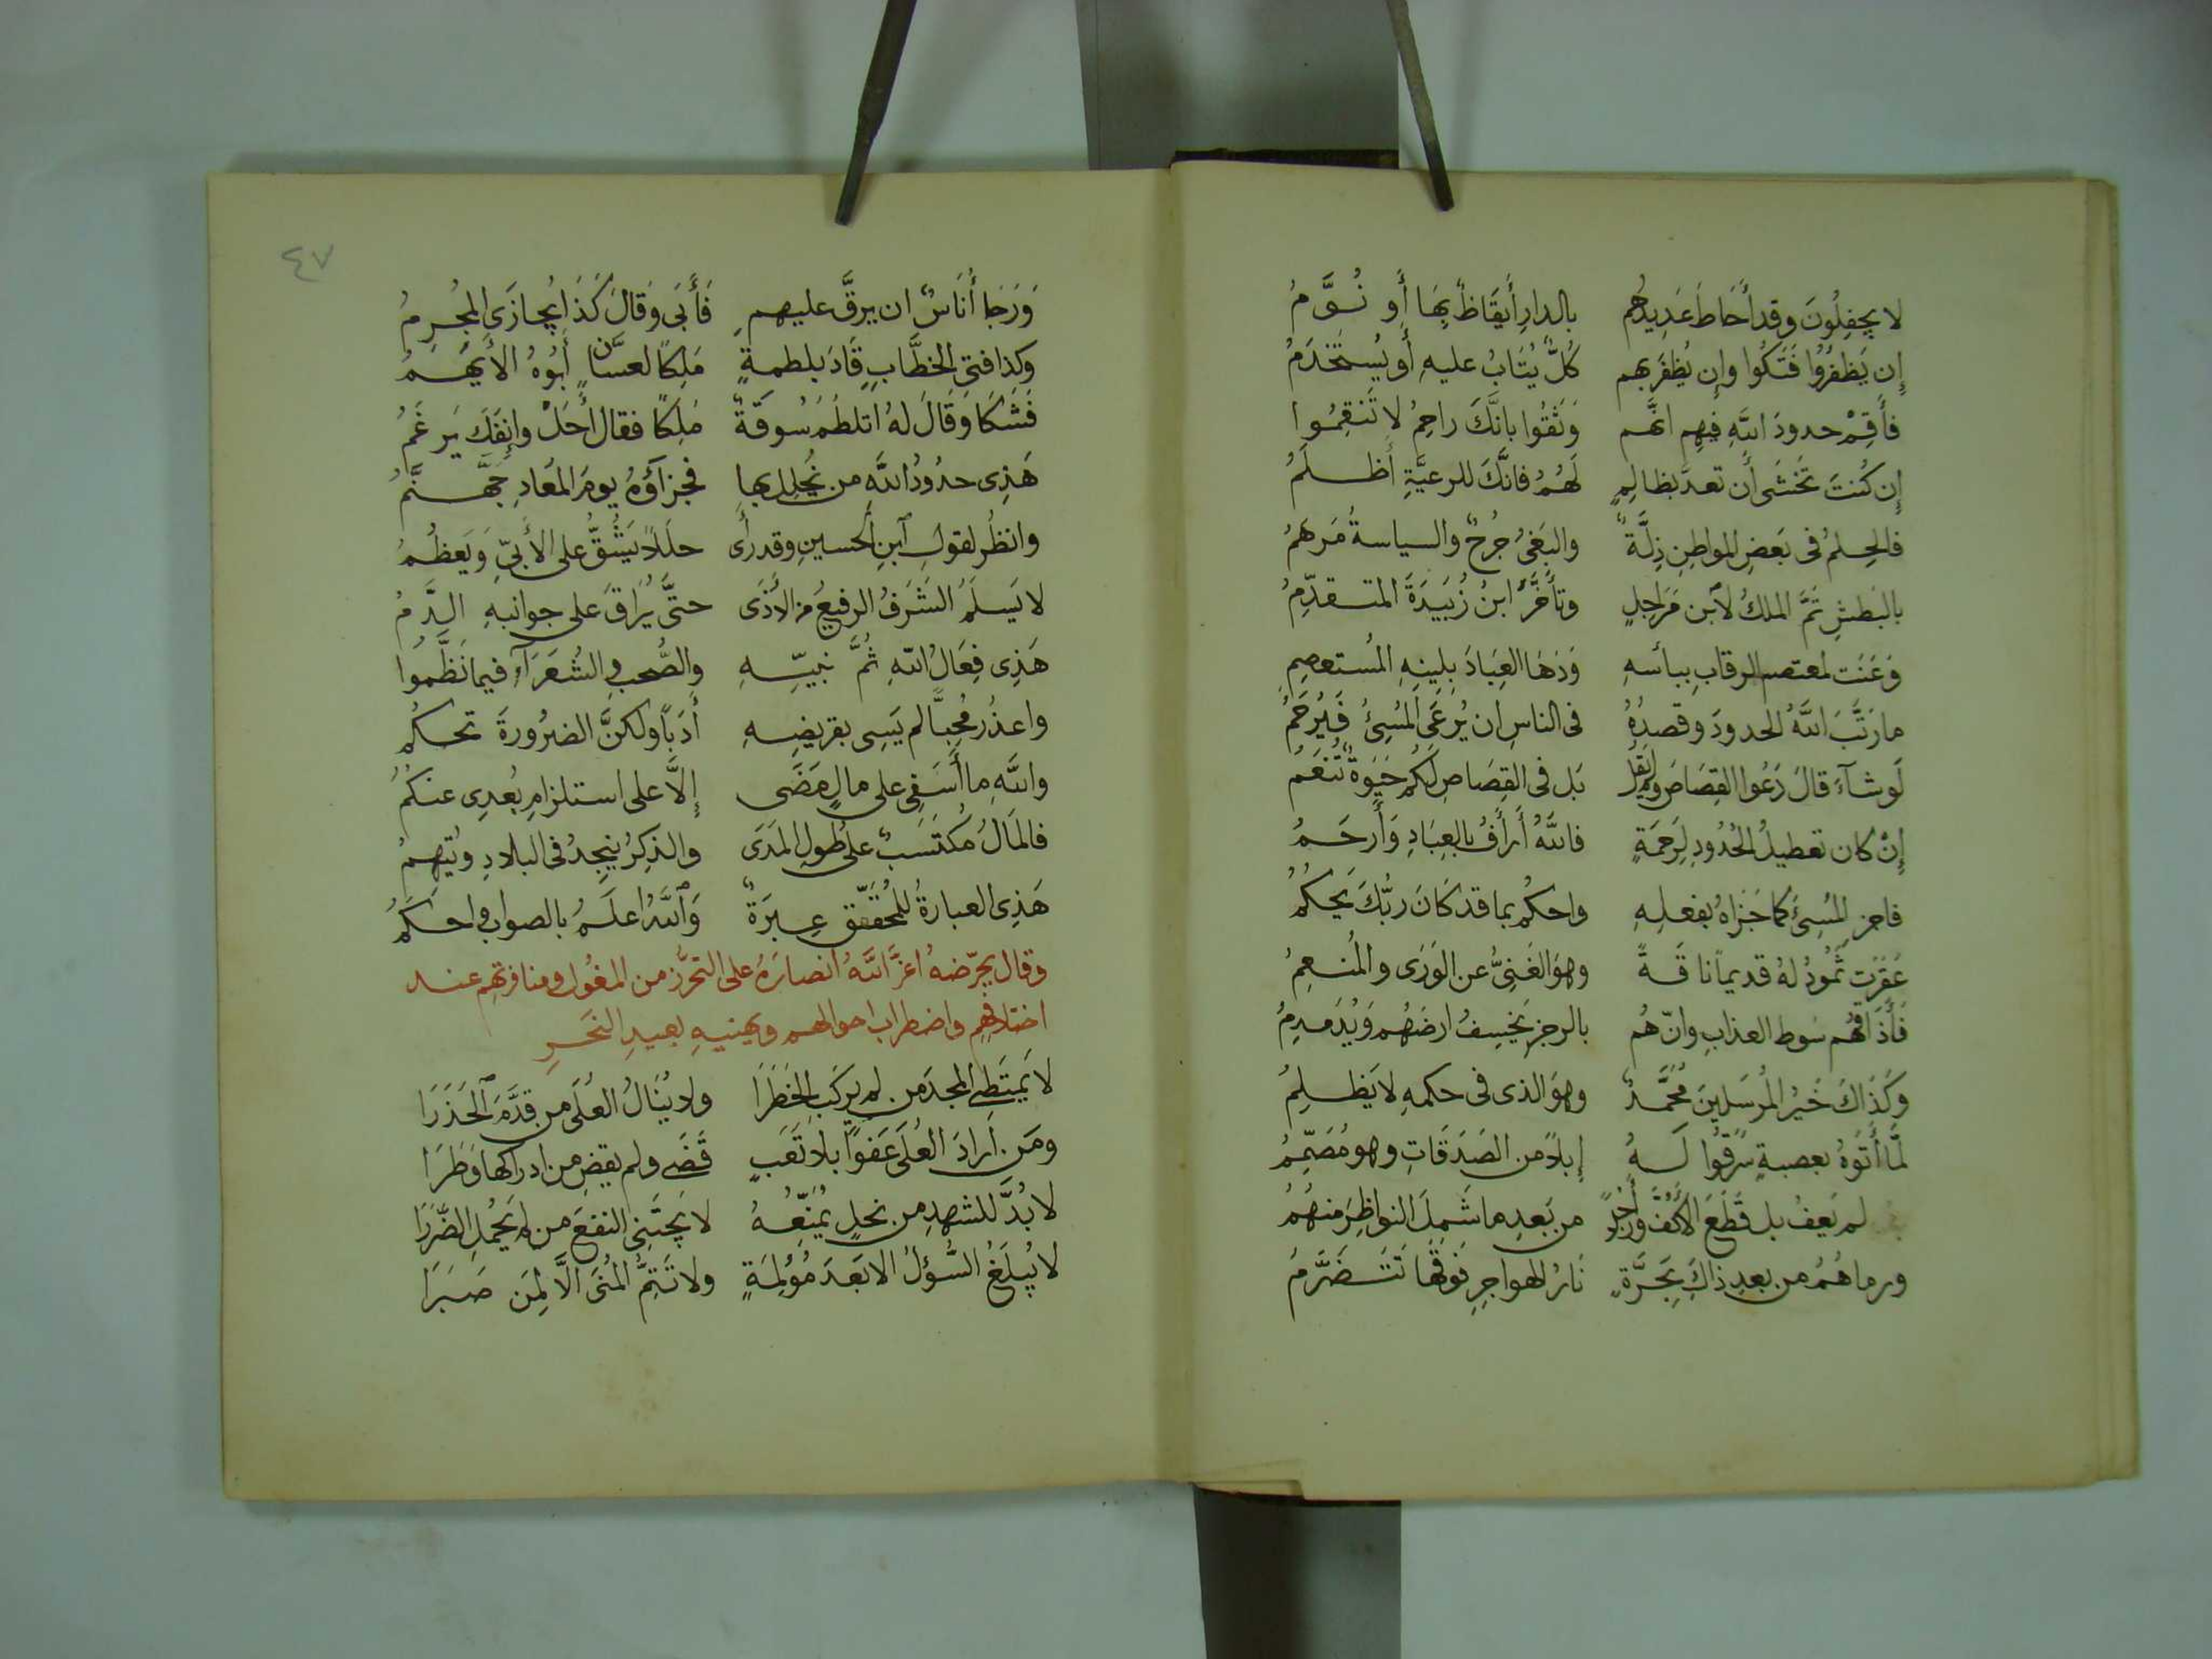 لا يحفِلُونَ وقد أَحَاطَ عَدِيدُهُم بالدارِ أَيقَاظٌ بِهَا أَو نُوَّمُ
إِن يَظفَرُوا فَتَكُوا وإِن يُظفَر بهم كُلٌّ يُتَابُ عليهِ أَو يُستَخدَمُ
فَأَقِمْ حدودَ اللَّهِ فيهِم انَّهم وَثَقُوا بانَّكَ راحِمٌ لا تَنقِمُوا
إِن كُنتَ تَخشَى أَن تعدَّ بظالِمٍ لَهُمُ فانَّكَ للرعيَّةِ أَظلَمُ
فالحِلمُ فى بَعضِ المواطِنِ ذِلَّةٌ والبَغىُ جُرحٌ والسياسةُ مَرهَمُ
بالبَطشِ تَمَّ الملكُ لاٱبن مَرَاجِلٍ وتأَخَّرَ ابنُ زُبَيدَةَ المتقدِّمُ
وَعَنَت لمعتصم الرقابِ ببأسهِ وَدَهَا العِبَادَ بلِينِهِ المُستعصِمِ
ما رَتَّبَ اللَّهُ الحدودَ وقصدُهُ فى الناسِ ان يُرعَى المُسِئُ فَيُرحَمُ
لَو شآءَ قالَ دَعُوا القِصَاصَ ولم يقُل بَل فى القِصَاصِ لَكُم حَيَوةٌ تُنعَمُ
إِنْ كان تعطيلُ الحُدُودِ لِرَحمَةٍ فاللَّهُ أَرأَفُ بالعِبَادِ وَأَرحَمُ
فاجزِ المُسِئَ كما جَزَاهُ بفعلِهِ واحكُم بما قد كَانَ رَبُّكَ يَحكُمُ
عَقَرَت ثَمُودُ لهُ قديماً ناقَةً وهوَ الغَنِىُّ عنِ الوَرَى والمُنعِمُ
فَأَذَاقَهُم سَوط العذابِ وانّهُم بالرجزِ يَخسِفُ ارضَهُم وَيُدَمدِمُ
وكَذَاكَ خَيرُ المُرسَلينَ مُحَمَّدٌ وهوَ الذى فى حكمهِ لا يَظلِمُ
لمَّا أَتَوهُ بعصبةٍ سَرَقُوا لَهُ إِبلاً من الصَدَقَاتِ وهو مُصَمِّمُ
لم يَعفُ بل قَطَعَ الأَكُفَّ وأَرجُلاً من بَعدِ ما شَمِلَ النواظِرَ منهُمُ
ورماهُمُ من بعدِ ذاكَ بِحَرَّةٍ نَارُ الهواجِرِ فوقَها تَتَضَرَّمُ
٤٧
وَرَجَا أُنَاسٌ ان يرقَّ عليهم فَأَبَى وَقالَ كَذَا يُجازَى المُجرِمُ
وكذا فتى الخطَّابِ قَادَ بلطمةٍ مَلِكًا لغسَّانٍ أَبُوهُ الأَيهَمُ
فَشَكَا وَقَالَ لهُ اتلطُمُ سُوقَةٌ مَلِكًا فقال أَجَلْ وانفَكَ يَرغَمُ
هَذِى حدُودُ اللَّهِ من يُخلِل بها فجزآؤُهُ يومَ المَعَادِ جَهَنَّمُ
وانظُر لقولِ ٱبنِ الحسينِ وقد رأَى حلَلاً يَشُقُّ على الأَبىِّ وَيَعظُمُ
لا يَسلَمُ الشَرَفُ الرفيعُ من الأَذَى حتَّى يُرَاقَ على جوانبهِ الدَّمُ
هَذِى فِعَالُ اللَّهِ ثُمَّ نبيِّهِ والصُّحبِ والشُعَرَآءِ فيما نَظَّمُوا
واعذُر مُحِبًّا لم يَسِى بقريضِهِ أَدَبًا ولكنَّ الضرُورةَ تحكُمُ
واللَّهِ ما أَسَفِى على مالٍ مَضَى إِلَّا على استلزامِ بُعدِى عنكُمُ
فالمَالُ مُكتَسَبٌ على طُولِ المَدَى والذِكرُ يُنجِدُ فى البلادِ ويُتهِمُ
هَذِى العبارةُ للمُحَقِّقِ عِبرَةٌ وَٱللَّهُ اعلَمُ بالصوابِ واحكَمُ
وقال يحرّضهُ اعزَّ اللَّهُ انصارَهُ على التحرُّزِ من المغُول ومنافرتهِم عند
اختلافِهِم واضطراب احوالهم ويهنيهِ بعيدِ النَحرِ
لا يَمتَطِى المجدَ من لم يركَبِ الخَطَرَا ولا يَنَالُ العُلَى من قدَّمَ ٱلحَذَرَا
ومَن ارادَ العُلَى عَفوًا بلا تَعَبٍ قَضَى ولم يقضِ من ادراكها وَطَرَا
لا بُدَّ للشهدِ من نحلٍ يُمَنِّعُهُ لا يَجتَنِى النفعَ من لم يَحمِلِ الضَّرَرَا
لا يُبلَغُ السُّؤلُ الا بَعدَ مُؤلِمَةٍ ولا تَتِمُّ المُنَى الَّا لِمَن صَبَرَا